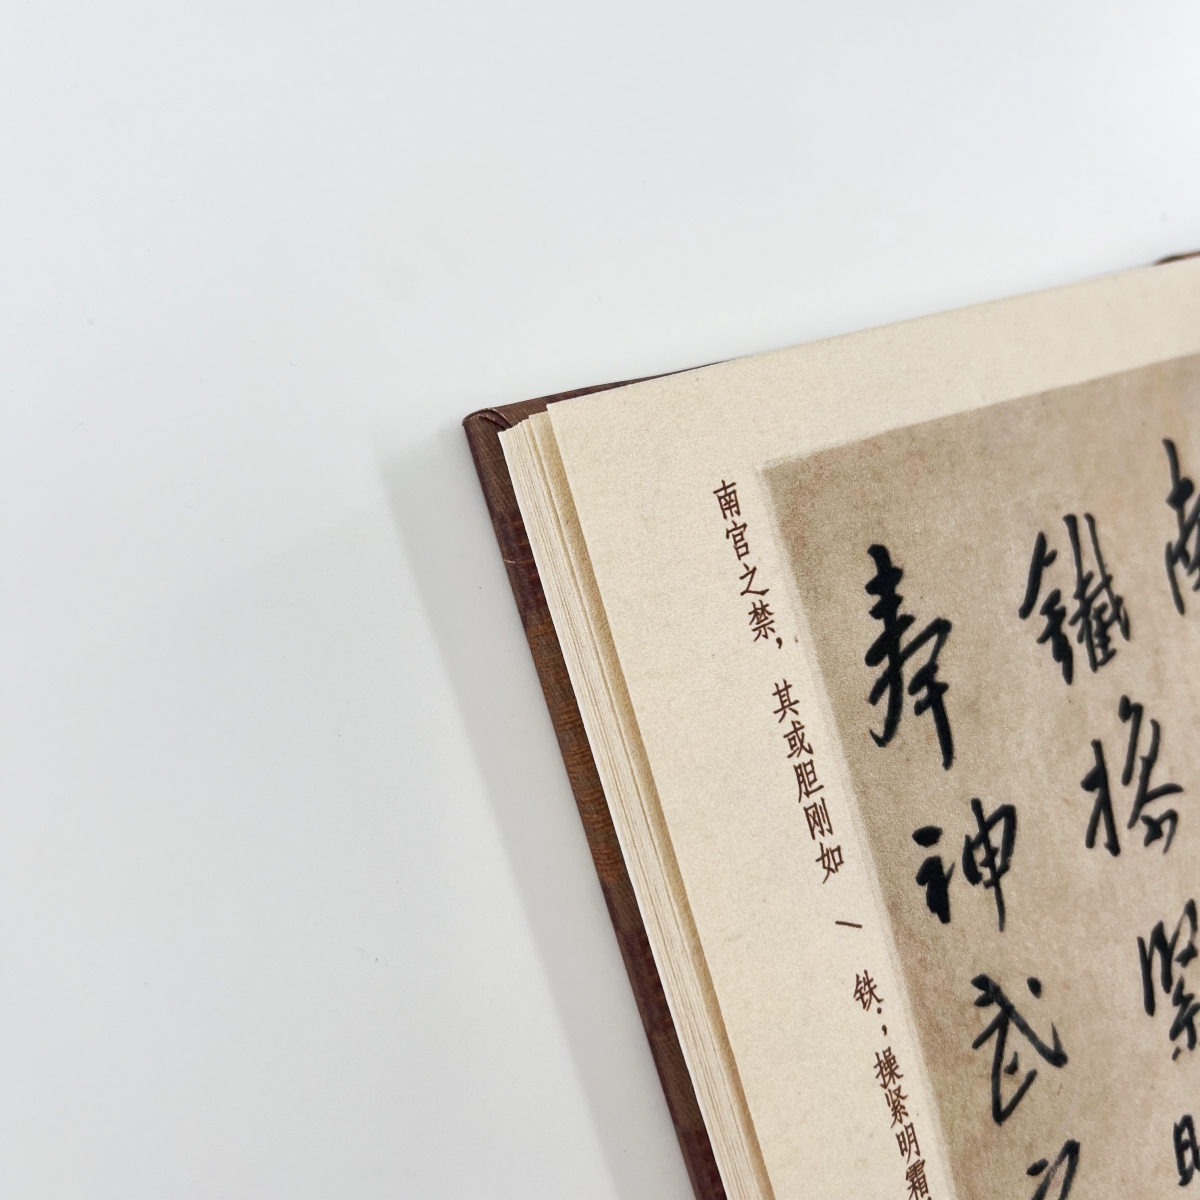 鐵操緊
奉神武
南官之禁，其或胆刚如 | 铁；操紧明霜